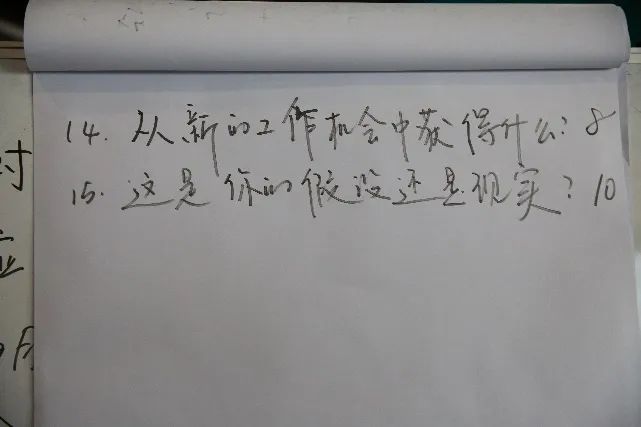 14. 从新的工作机会中获得什么? 8
15. 这是你的假设还是现实? 10
讨
应